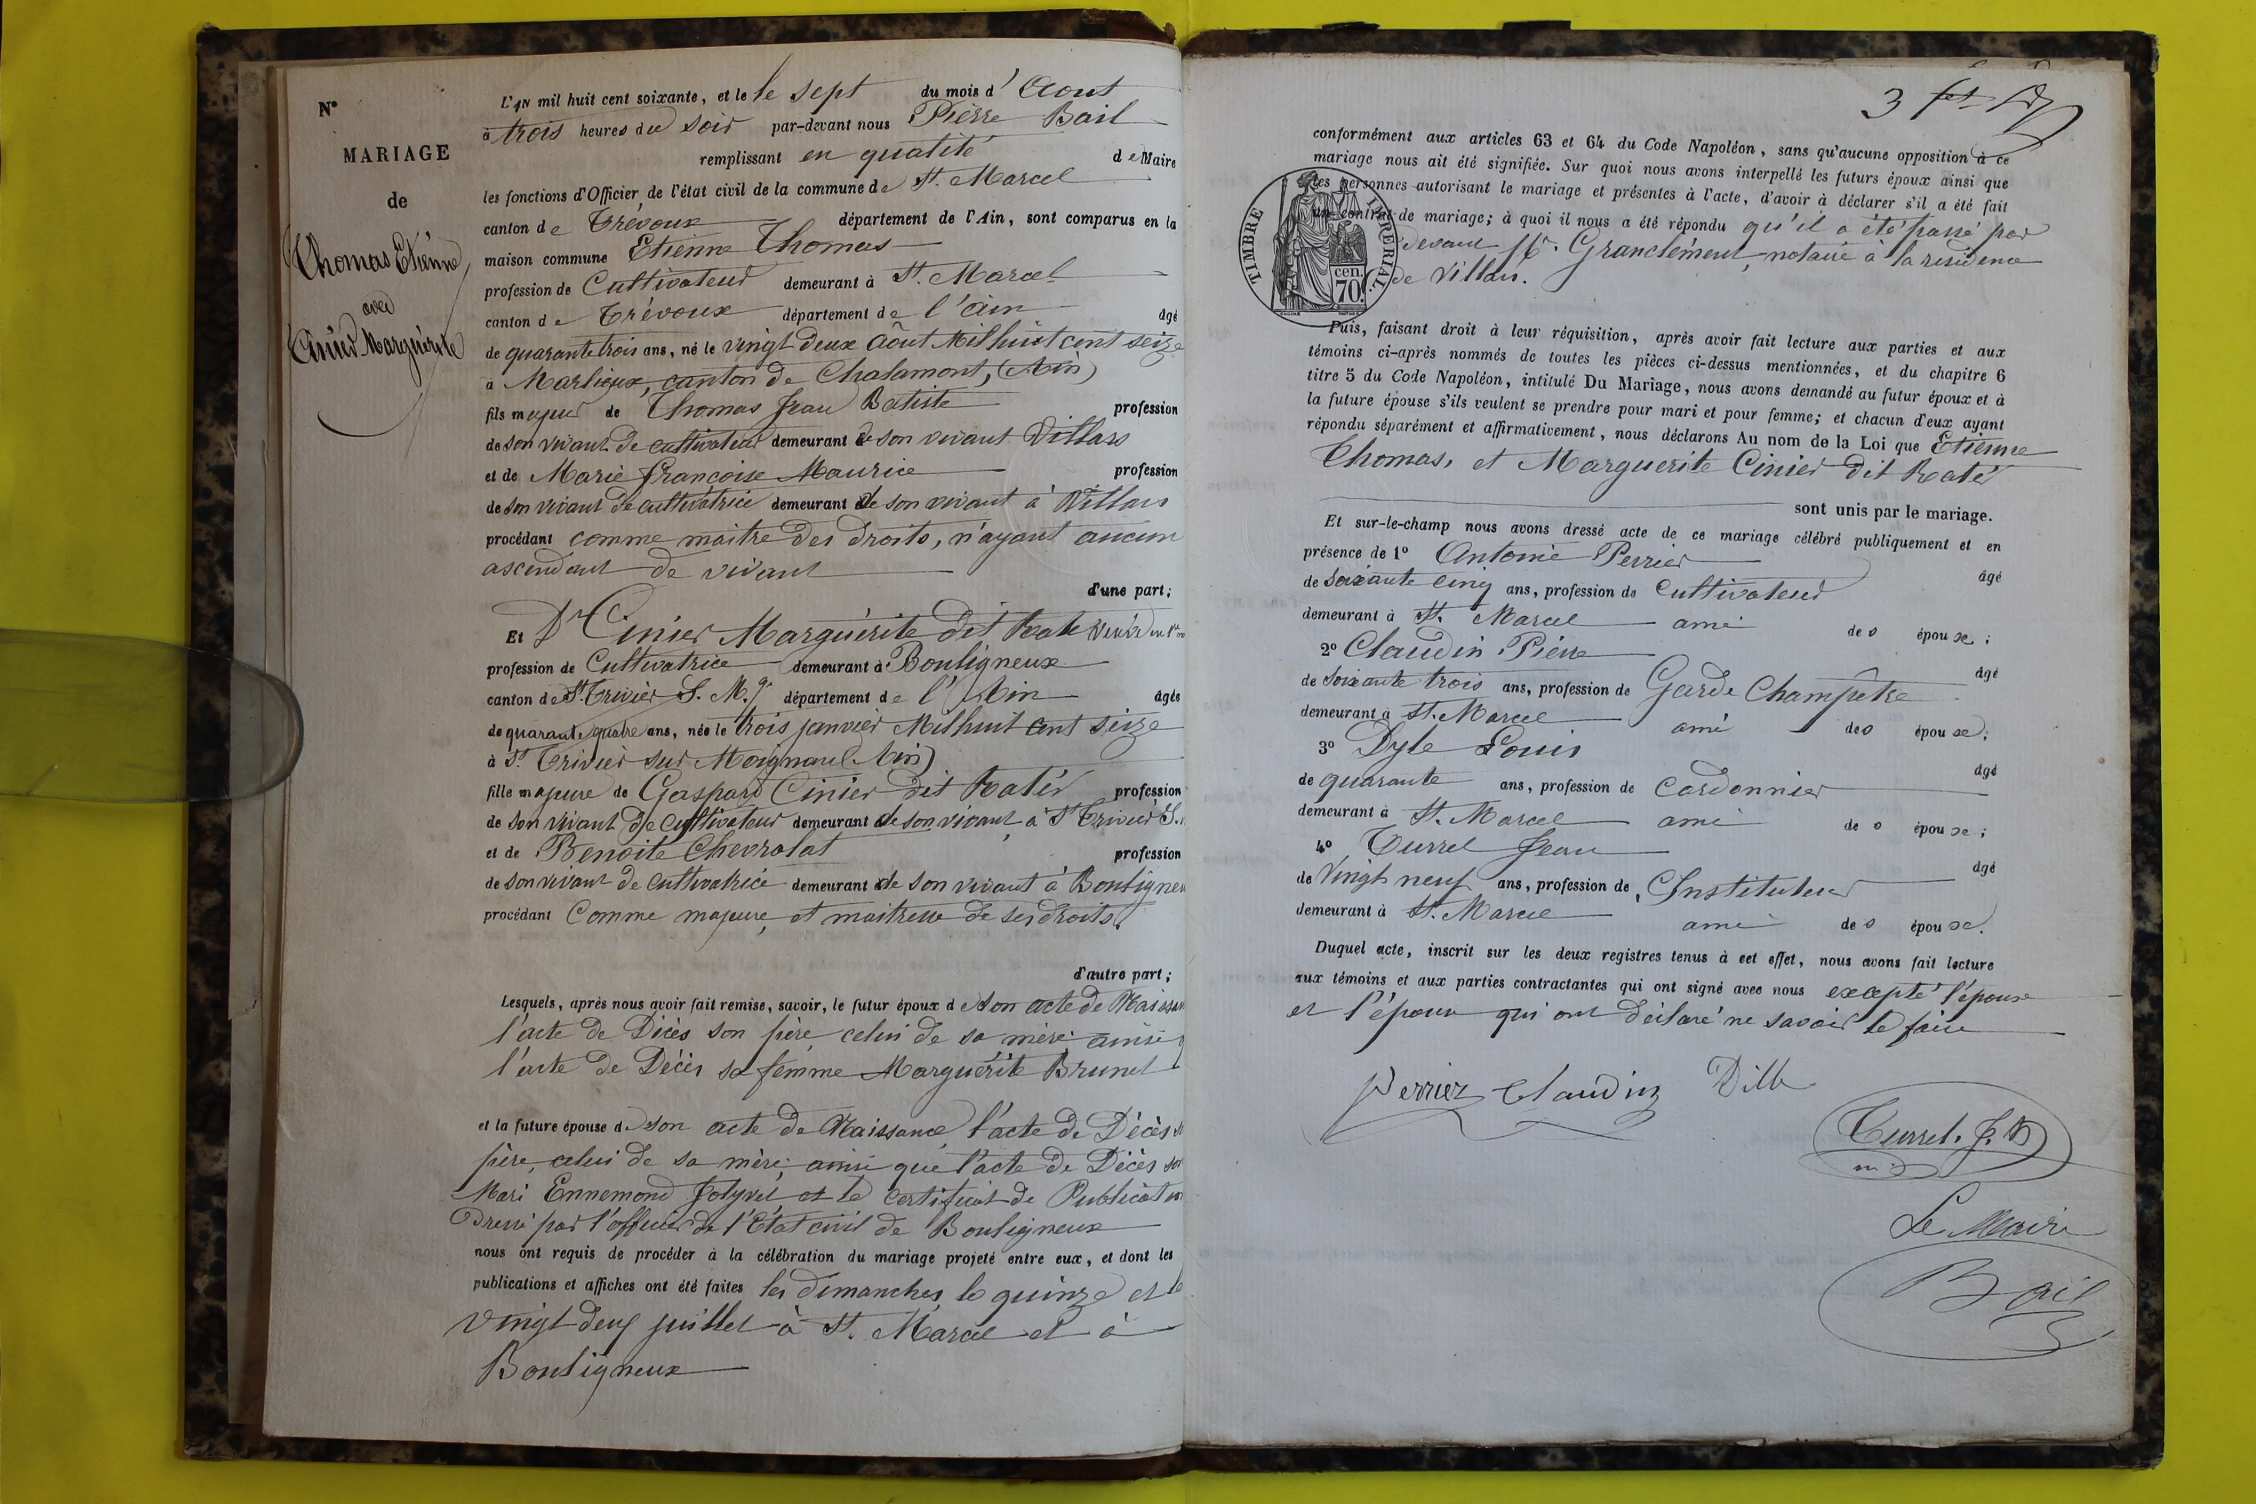 N°
MARIAGE
de
Thomas Etienne
avec
Cinier Marguerite
L'AN mil huit cent soixante, et le le sept du mois d'Aout
à trois heures du soir par-devant nous Pierre Bail
remplissant en qualité de Maire
les fonctions d'Officier de l'état civil de la commune de St. Marcel
canton de Trévoux département de l'Ain, sont comparus en la
maison commune Etienne Thomas
profession de Cultivateur demeurant à St. Marcel
canton de Trévoux département de l'ain âgé
de quarante trois ans, né le vingt deux Août Mil huit cent seize
à Marlieux, canton de Chalamont, (Ain)
fils majeur de Thomas Jean Batiste profession
de son vivant de cultivateur demeurant de son vivant Villars
et de Marie françoise Maurice profession
de son vivant de cultivatrice demeurant de son vivant à Villars
procédant comme maitre des droits, n'ayant aucun
ascendant de vivant
d'une part;
Et Dr Cinier Marguérite dit Raté
profession de Cultivatrice demeurant à Bouligneux
canton de St Trivier S. M. département de l'Ain âgés
de quarante quatre ans, née le trois janvier Mil huit cent seize
à St. Trivier sur Moignans (Ain)
fille majeure de Gaspard Cinier dit Ratér profession
de son vivant de cultivateur demeurant de son vivant à St Trivier S.
et de Benoite Chevrolat profession
de son vivant de cultivatrice demeurant de son vivant à Bouligneu
procédant Comme majeure, et maitresse de ses droits
d'autre part;
Lesquels, après nous avoir fait remise, savoir, le futur époux de son acte de Naissan
l'acte de Décès son père, celui de sa mère ainsi q
l'acte de Décès sa femme Marguérite Brunet
et la future épouse de son acte de Naissance l'acte de Décès
père, celui de sa mère, ainsi que l'acte de Décès son
Mari Ennemond Jolyvet et le certificat de Publication
Dressé par l'officier de l'Etat civil de Bouligneux
nous ont requis de procéder à la célébration du mariage projeté entre eux, et dont les
publications et affiches ont été faites les dimanches le quinze et le
vingt deux juillet à St. Marcel et à
Bouligneux
3
conformément aux articles 63 et 64 du Code Napoléon, sans qu'aucune opposition à ce
mariage nous ait été signifiée. Sur quoi nous avons interpellé les futurs époux ainsi que
les personnes autorisant le mariage et présentes à l'acte, d'avoir à déclarer s'il a été fait
un contrat de mariage; à quoi il nous a été répondu qu'il a été passé par
devant Me. Granclément, notaire à la residence
de Villars.
TIMBRE IMPERIAL.
70 cen.
Puis, faisant droit à leur réquisition, après avoir fait lecture aux parties et aux
témoins ci-après nommés de toutes les pièces ci-dessus mentionnées, et du chapitre 6
titre 5 du Code Napoléon, intitulé Du Mariage, nous avons demandé au futur époux et à
la future épouse s'ils veulent se prendre pour mari et pour femme; et chacun d'eux ayant
répondu séparément et affirmativement, nous déclarons Au nom de la Loi que Etienne
Thomas, et Marguerite Cinier dit Ratér
sont unis par le mariage.
Et sur-le-champ nous avons dressé acte de ce mariage célébré publiquement et en
présence de 1° Antoine Perrier
âgé
de soixante cinq ans, profession de Cultivateur
demeurant à St. Marcel ami des épouxe;
2° Claudin Pierre
âgé
de soixante trois ans, profession de Garde Champêtre
demeurant à St. Marcel ami des épouxe;
3° Dyle Louis
âgé
de quarante ans, profession de Cordonnier
demeurant à St. Marcel ami des épouxe;
4° Turrel Jean
âgé
de Vingt neuf ans, profession de Instituteur
demeurant à St. Marcel ami des épouxe.
Duquel acte, inscrit sur les deux registres tenus à cet effet, nous avons fait lecture
aux témoins et aux parties contractantes qui ont signé avec nous excepté l'épouse
et l'époux qui ont déclaré ne savoir le faire
Perrier Claudin Dille
Turrel. J. B
Le Maire
Bail